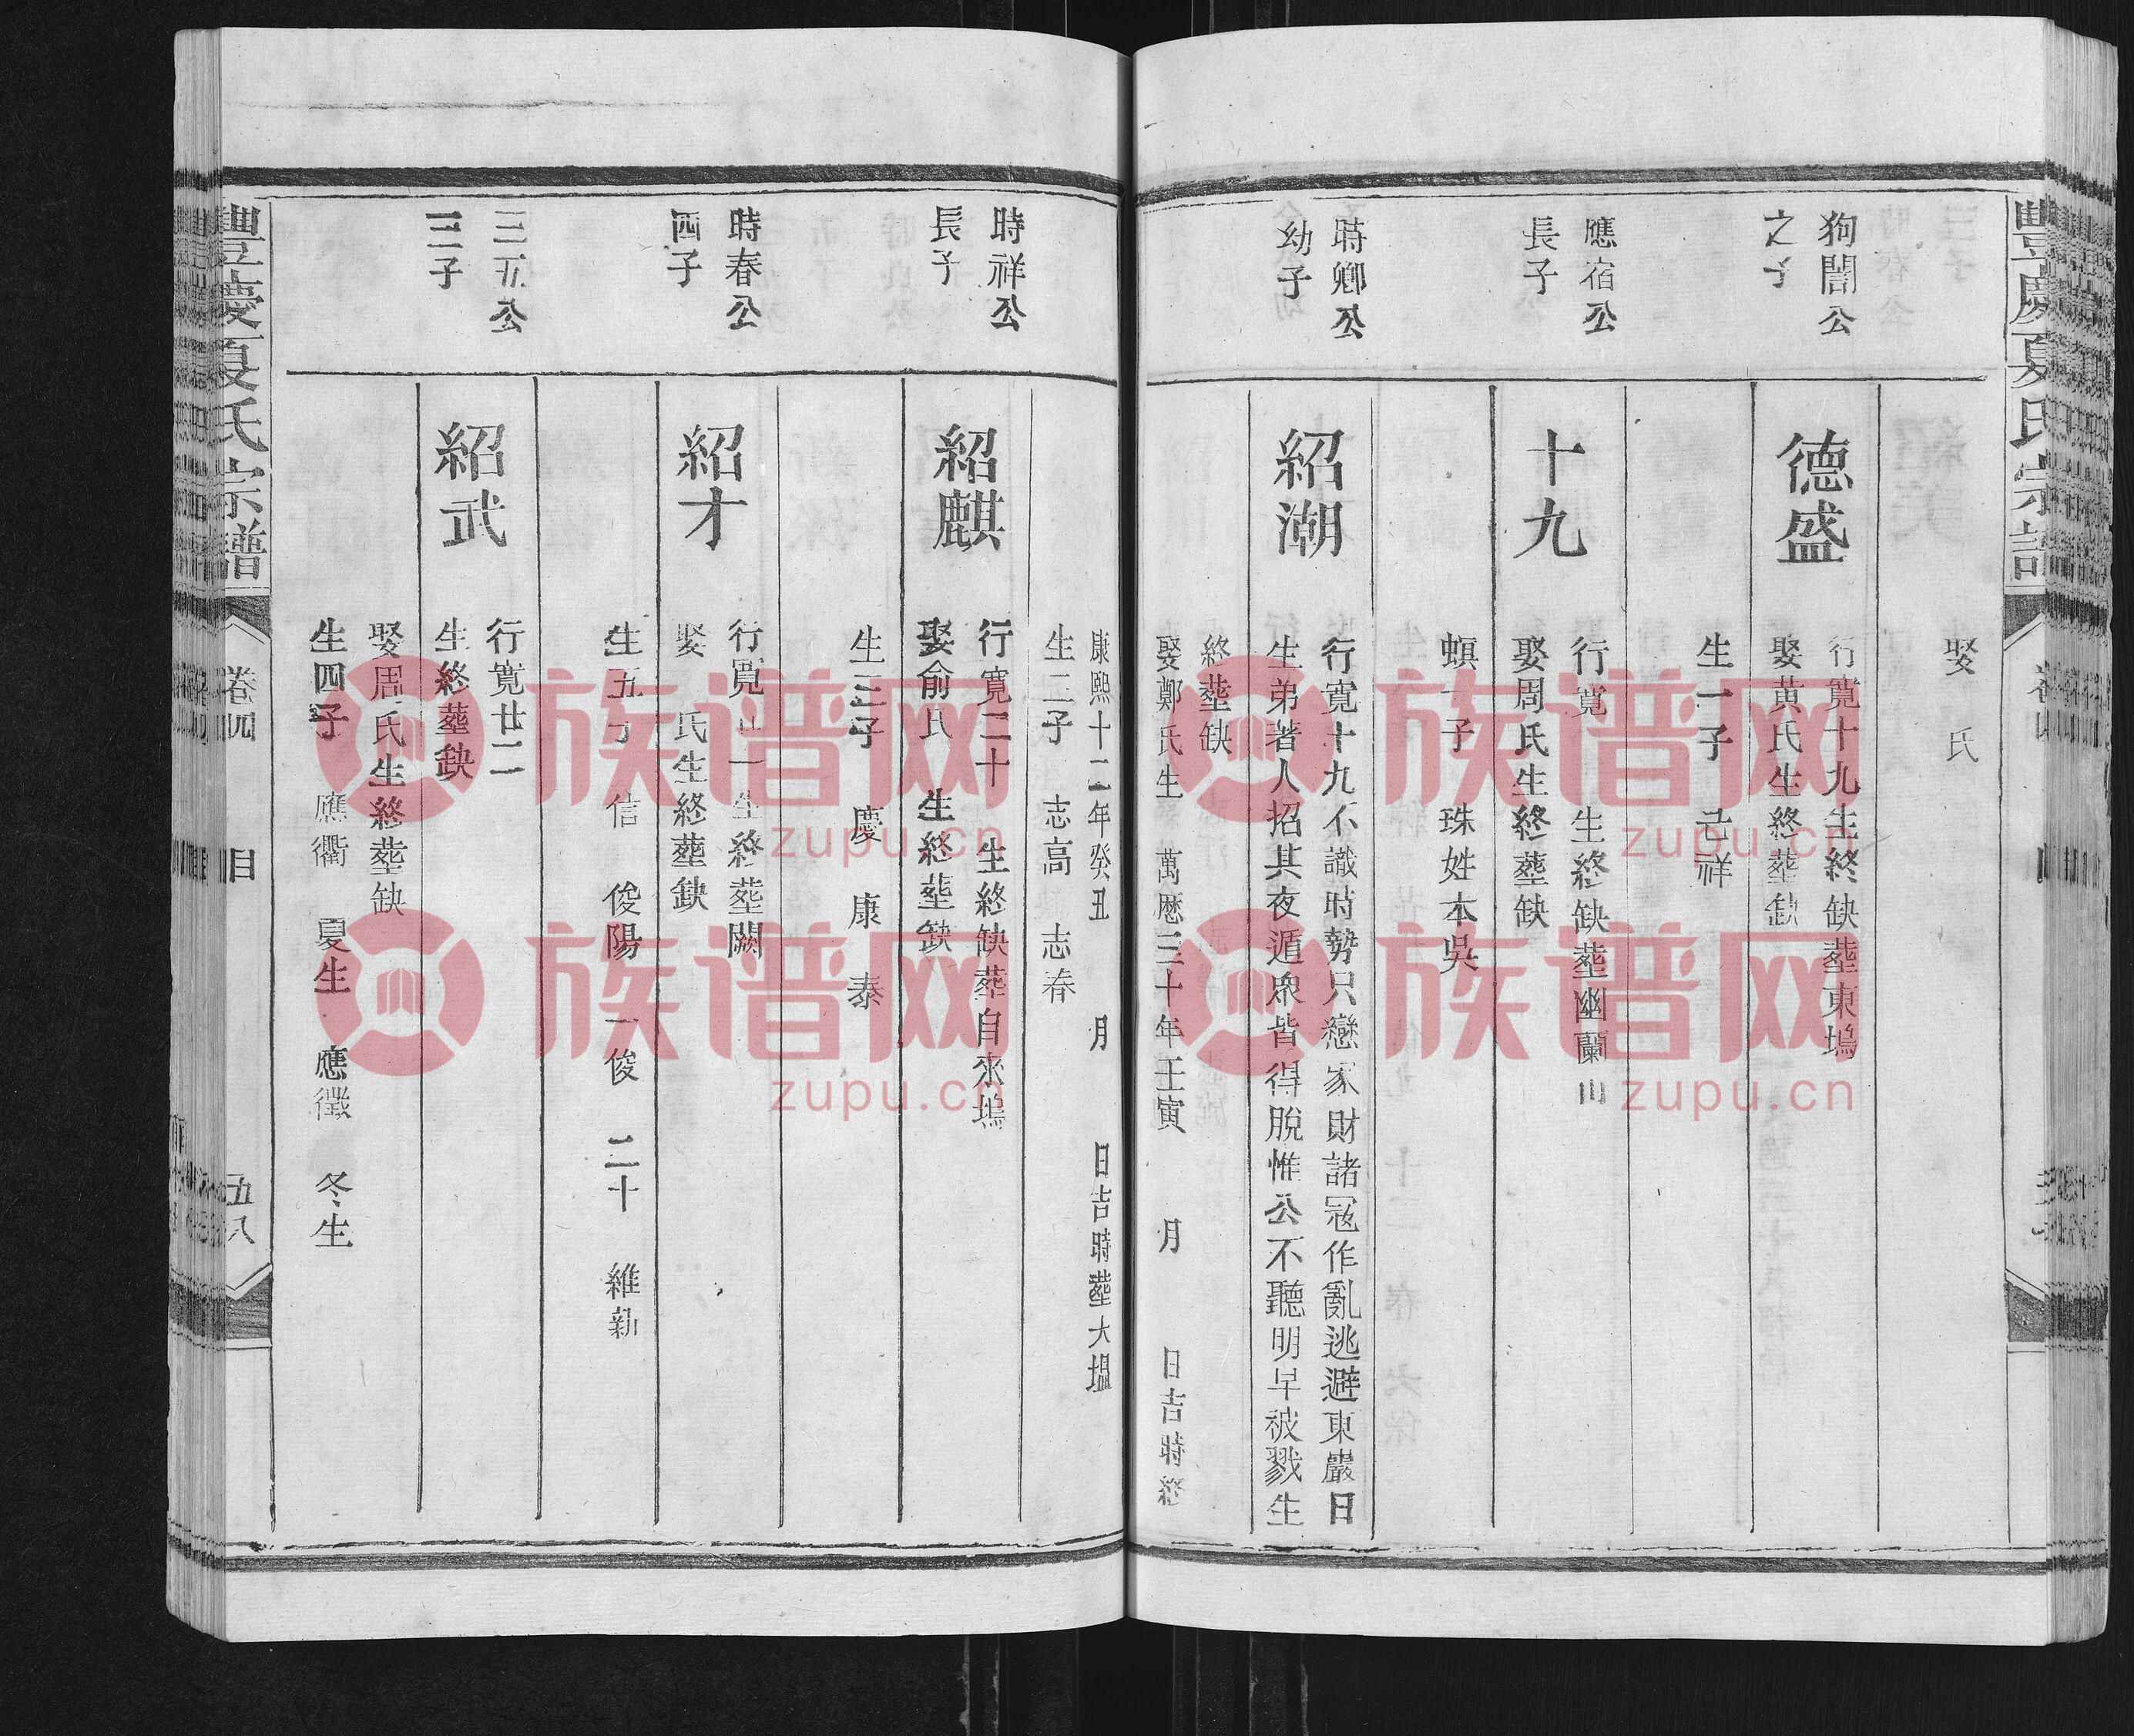 豐慶夏氏宗譜
娶 氏
狗誾公
之子
德盛
行寬十九生終缺塟東塢
娶黃氏生終塟缺
生一子
應宿公
長子
十九
行寬 生終缺塟幽蘭山
娶周氏生終塟缺
螟一子 珠姓本吳
時卿公
幼子
紹潮
行寬十九不識時勢只戀家財諸冦作亂逃避東巖日
生弟著人招其夜遁衆皆得脫惟公不聽明早被戮生
終塟缺
娶鄭氏生 萬厯三十年壬寅 月 日吉時終
康熙十二年癸丑 月 日吉時塟大塭
生二子 志高 志春
時祥公
長子
紹麒
行寬二十 生終缺塟自來塢
娶俞氏 生終塟缺
生三子 慶 康 泰
時春公
四子
紹才
行寬廿一生終塟闕
娶 氏生終塟缺
生五子 信 俊陽 一俊 二十 維新
三五公
二子
紹武
行寬廿二
生終塟缺
娶周氏生終塟缺
生四子 應衢 夏生 應徵 冬生
豐慶夏氏宗譜
卷四
五八
族谱网
zupu.cn
族谱网
zupu.cn
族谱网
zupu.cn
族谱网
zupu.cn